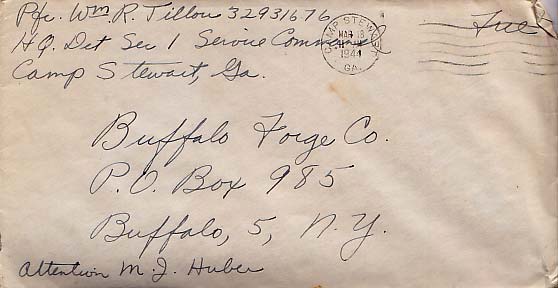 Pfc. Wm. R. Tillou 32931676
HQ. Det Sec 1 Service Command
Camp Stewart, Ga.
CAMP STEWART
MAR 13
1944
GA.
Free
Buffalo Forge Co.
P.O. Box 985
Buffalo, 5, N.Y.
Attention M. J. Huber